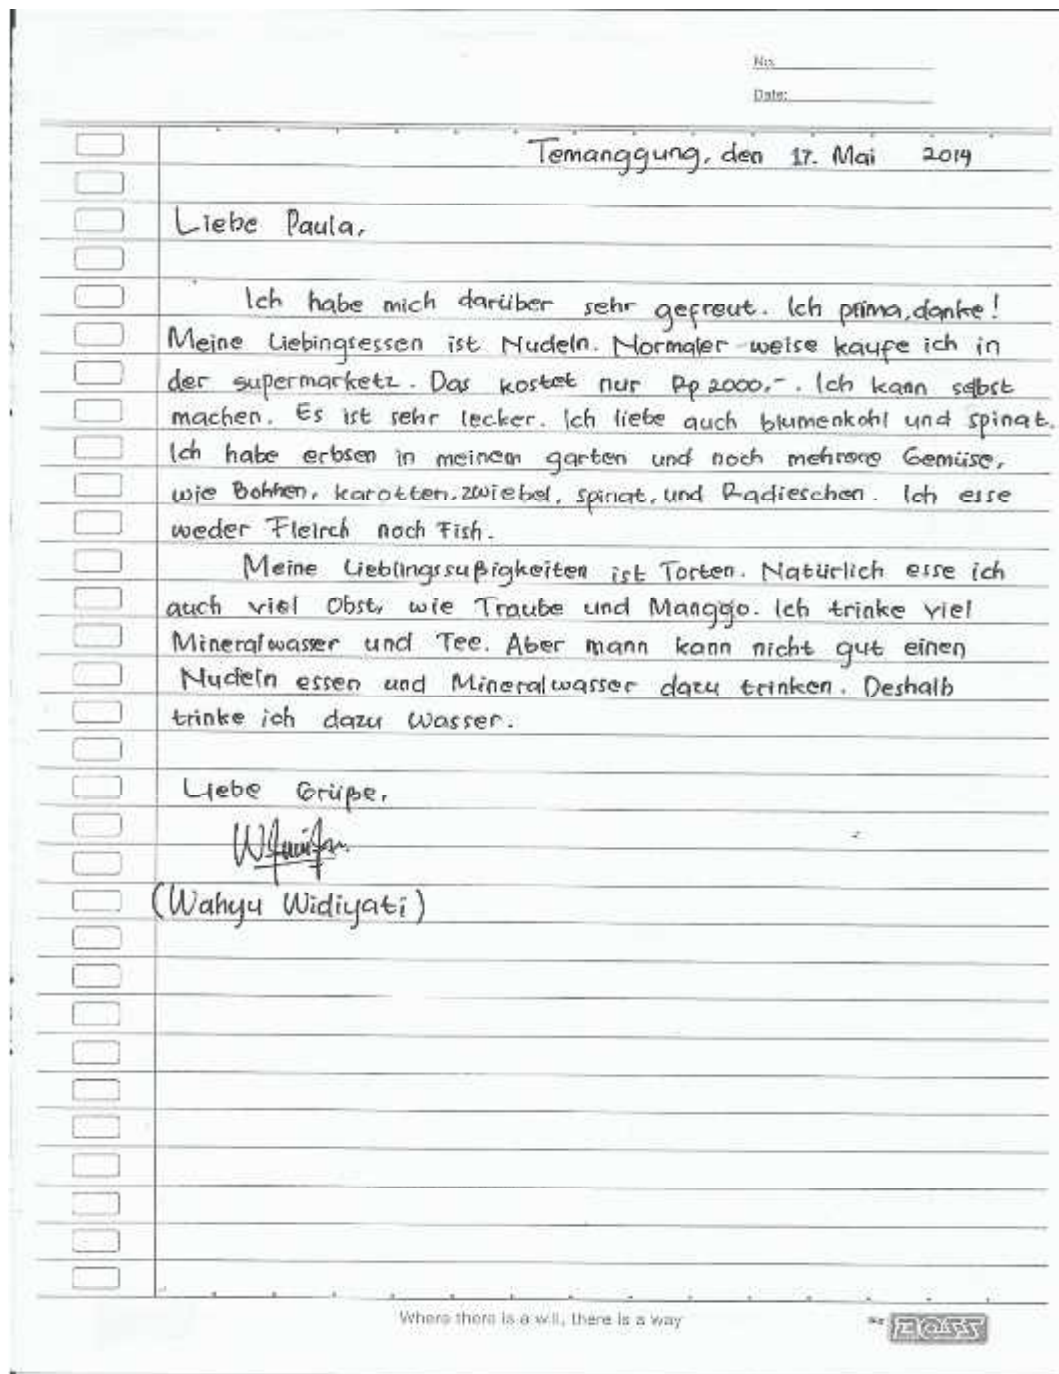 No.
Date:
Temanggung, den 17. Mai 2014
Liebe Paula,
Ich habe mich darüber sehr gefreut. Ich prima, danke!
Meine Liebingsessen ist Nudeln. Normaler weise kaufe ich in
der supermarketz. Das kostet nur Rp 2000,-. Ich kann selbst
machen. Es ist sehr lecker. Ich liebe auch blumenkohl und spinat.
Ich habe erbsen in meinem garten und noch mehrere Gemüse,
wie Bohnen, karotten, zwiebel, spinat, und Radieschen. Ich esse
weder Fleirch noch Fish.
Meine Lieblingssußigkeiten ist Torten. Natürlich esse ich
auch viel Obst, wie Traube und Manggo. Ich trinke viel
Mineralwasser und Tee. Aber mann kann nicht gut einen
Nudeln essen und Mineralwasser dazu trinken. Deshalb
trinke ich dazu Wasser.
Liebe Grüße,
(Wahyu Widiyati)
Where there is a will, there is a way
BOSS